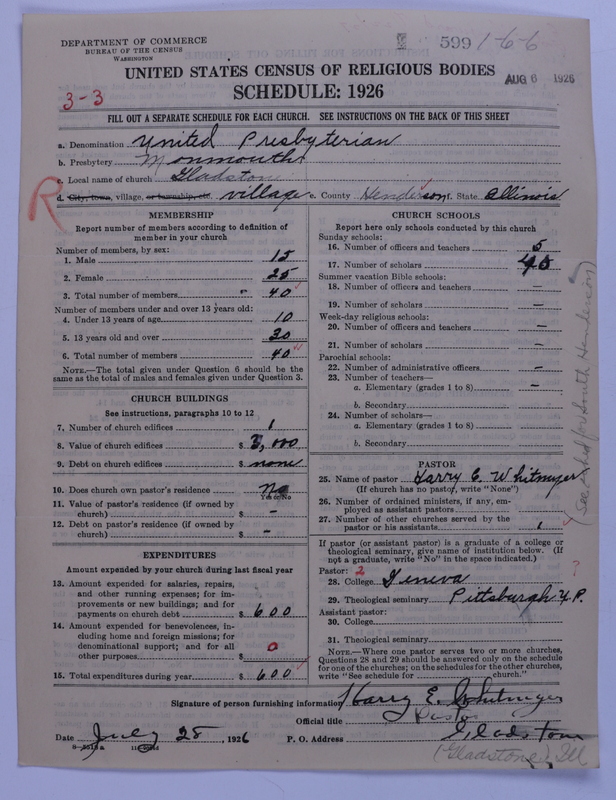 DEPARTMENT OF COMMERCE
BUREAU OF THE CENSUS
WASHINGTON
599 1-6-6
UNITED STATES CENSUS OF RELIGIOUS BODIES
AUG 6 1926
3-3
SCHEDULE: 1926
FILL OUT A SEPARATE SCHEDULE FOR EACH CHURCH. SEE INSTRUCTIONS ON THE BACK OF THIS SHEET
a. Denomination United Presbyterian
b. Presbytery Monmouth
c. Local name of church Gladstone
R
d. City, town, village, or township, etc. village e. County Henderson f. State Illinois
MEMBERSHIP
Report number of members according to definition of member in your church
Number of members, by sex:
1. Male 15
2. Female 25
3. Total number of members 40
Number of members under and over 13 years old:
4. Under 13 years of age 10
5. 13 years old and over 30
6. Total number of members 40
NOTE.—The total given under Question 6 should be
same as the total of males and females given under Question 3.
CHURCH BUILDINGS
See instructions, paragraphs 10 to 12
7. Number of church edifices 1
8. Value of church edifices $ 3,000
9. Debt on church edifices $ none
10. Does church own pastor's residence No
Yes or No
11. Value of pastor's residence (if owned by
church) $ –
12. Debt on pastor's residence (if owned by
church) $ –
EXPENDITURES
Amount expended by your church during last fiscal year
13. Amount expended for salaries, repairs,
and other running expenses; for im-
provements or new buildings; and for
payments on church debt $ 600
14. Amount expended for benevolences, in-
cluding home and foreign missions; for
denominational support; and for all
other purposes $ 0
15. Total expenditures during year $ 600
CHURCH SCHOOLS
Report here only schools conducted by this church
Sunday schools:
16. Number of officers and teachers 5
17. Number of scholars
Summer vacation Bible schools:
18. Number of officers and teachers —
19. Number of scholars —
Week-day religious schools:
20. Number of officers and teachers —
21. Number of scholars —
Parochial schools:
22. Number of administrative officers —
23. Number of teachers—
a. Elementary (grades 1 to 8) —
b. Secondary
24. Number of scholars—
a. Elementary (grades 1 to 8)
b. Secondary
PASTOR
25. Name of pastor Harry E. Whitmyer
(If church has no pastor, write "None")
26. Number of ordained ministers, if any, em-
ployed as assistant pastors
27. Number of other churches served by the
pastor or his assistants 1
If pastor (or assistant pastor) is a graduate of a college or
theological seminary, give name of institution below. (If
not a graduate, write "No" in the space indicated.)
Pastor: 2
?
28. College Geneva
29. Theological seminary Pittsburgh U.P.
Assistant pastor:
30. College
31. Theological seminary
NOTE.—Where one pastor serves two or more churches,
Questions 28 and 29 should be answered only on the schedule
for one of the churches; on the schedules for the other churches,
write "See schedule for church."
(See sched for South Henderson)
Signature of person furnishing information Harry E. Whitmyer
Official title Pastor
Date July 28, 1926 P. O. Address Gladstone
(Gladstone), Ill